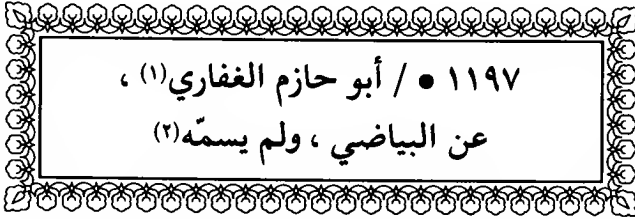 ١١٩٧ ● / أبو حازم الغفاري(١) ،
عن البياضي ، ولم يسمّه(٢)